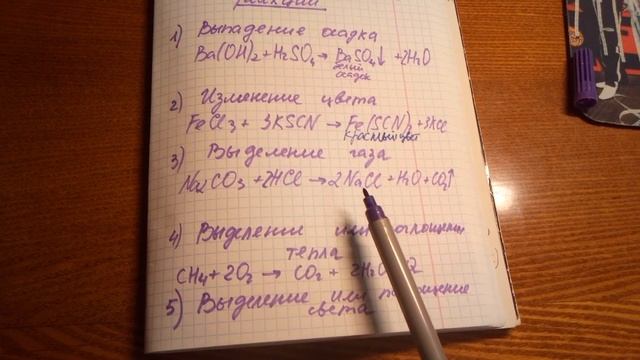 реакции
1) Выпадение осадка
Ba(OH)2 + H2SO4 → BaSO4↓ + 2H2O
белый
осадок
2) Изменение цвета
FeCl3 + 3KSCN → Fe(SCN)3 + 3KCl
красный цвет
3) Выделение газа
Na2CO3 + 2HCl → 2NaCl + H2O + CO2↑
4) Выделение или
тепла
CH4 + 2O2 → CO2 + 2H2O Q
5) Выделение или поглощение
света